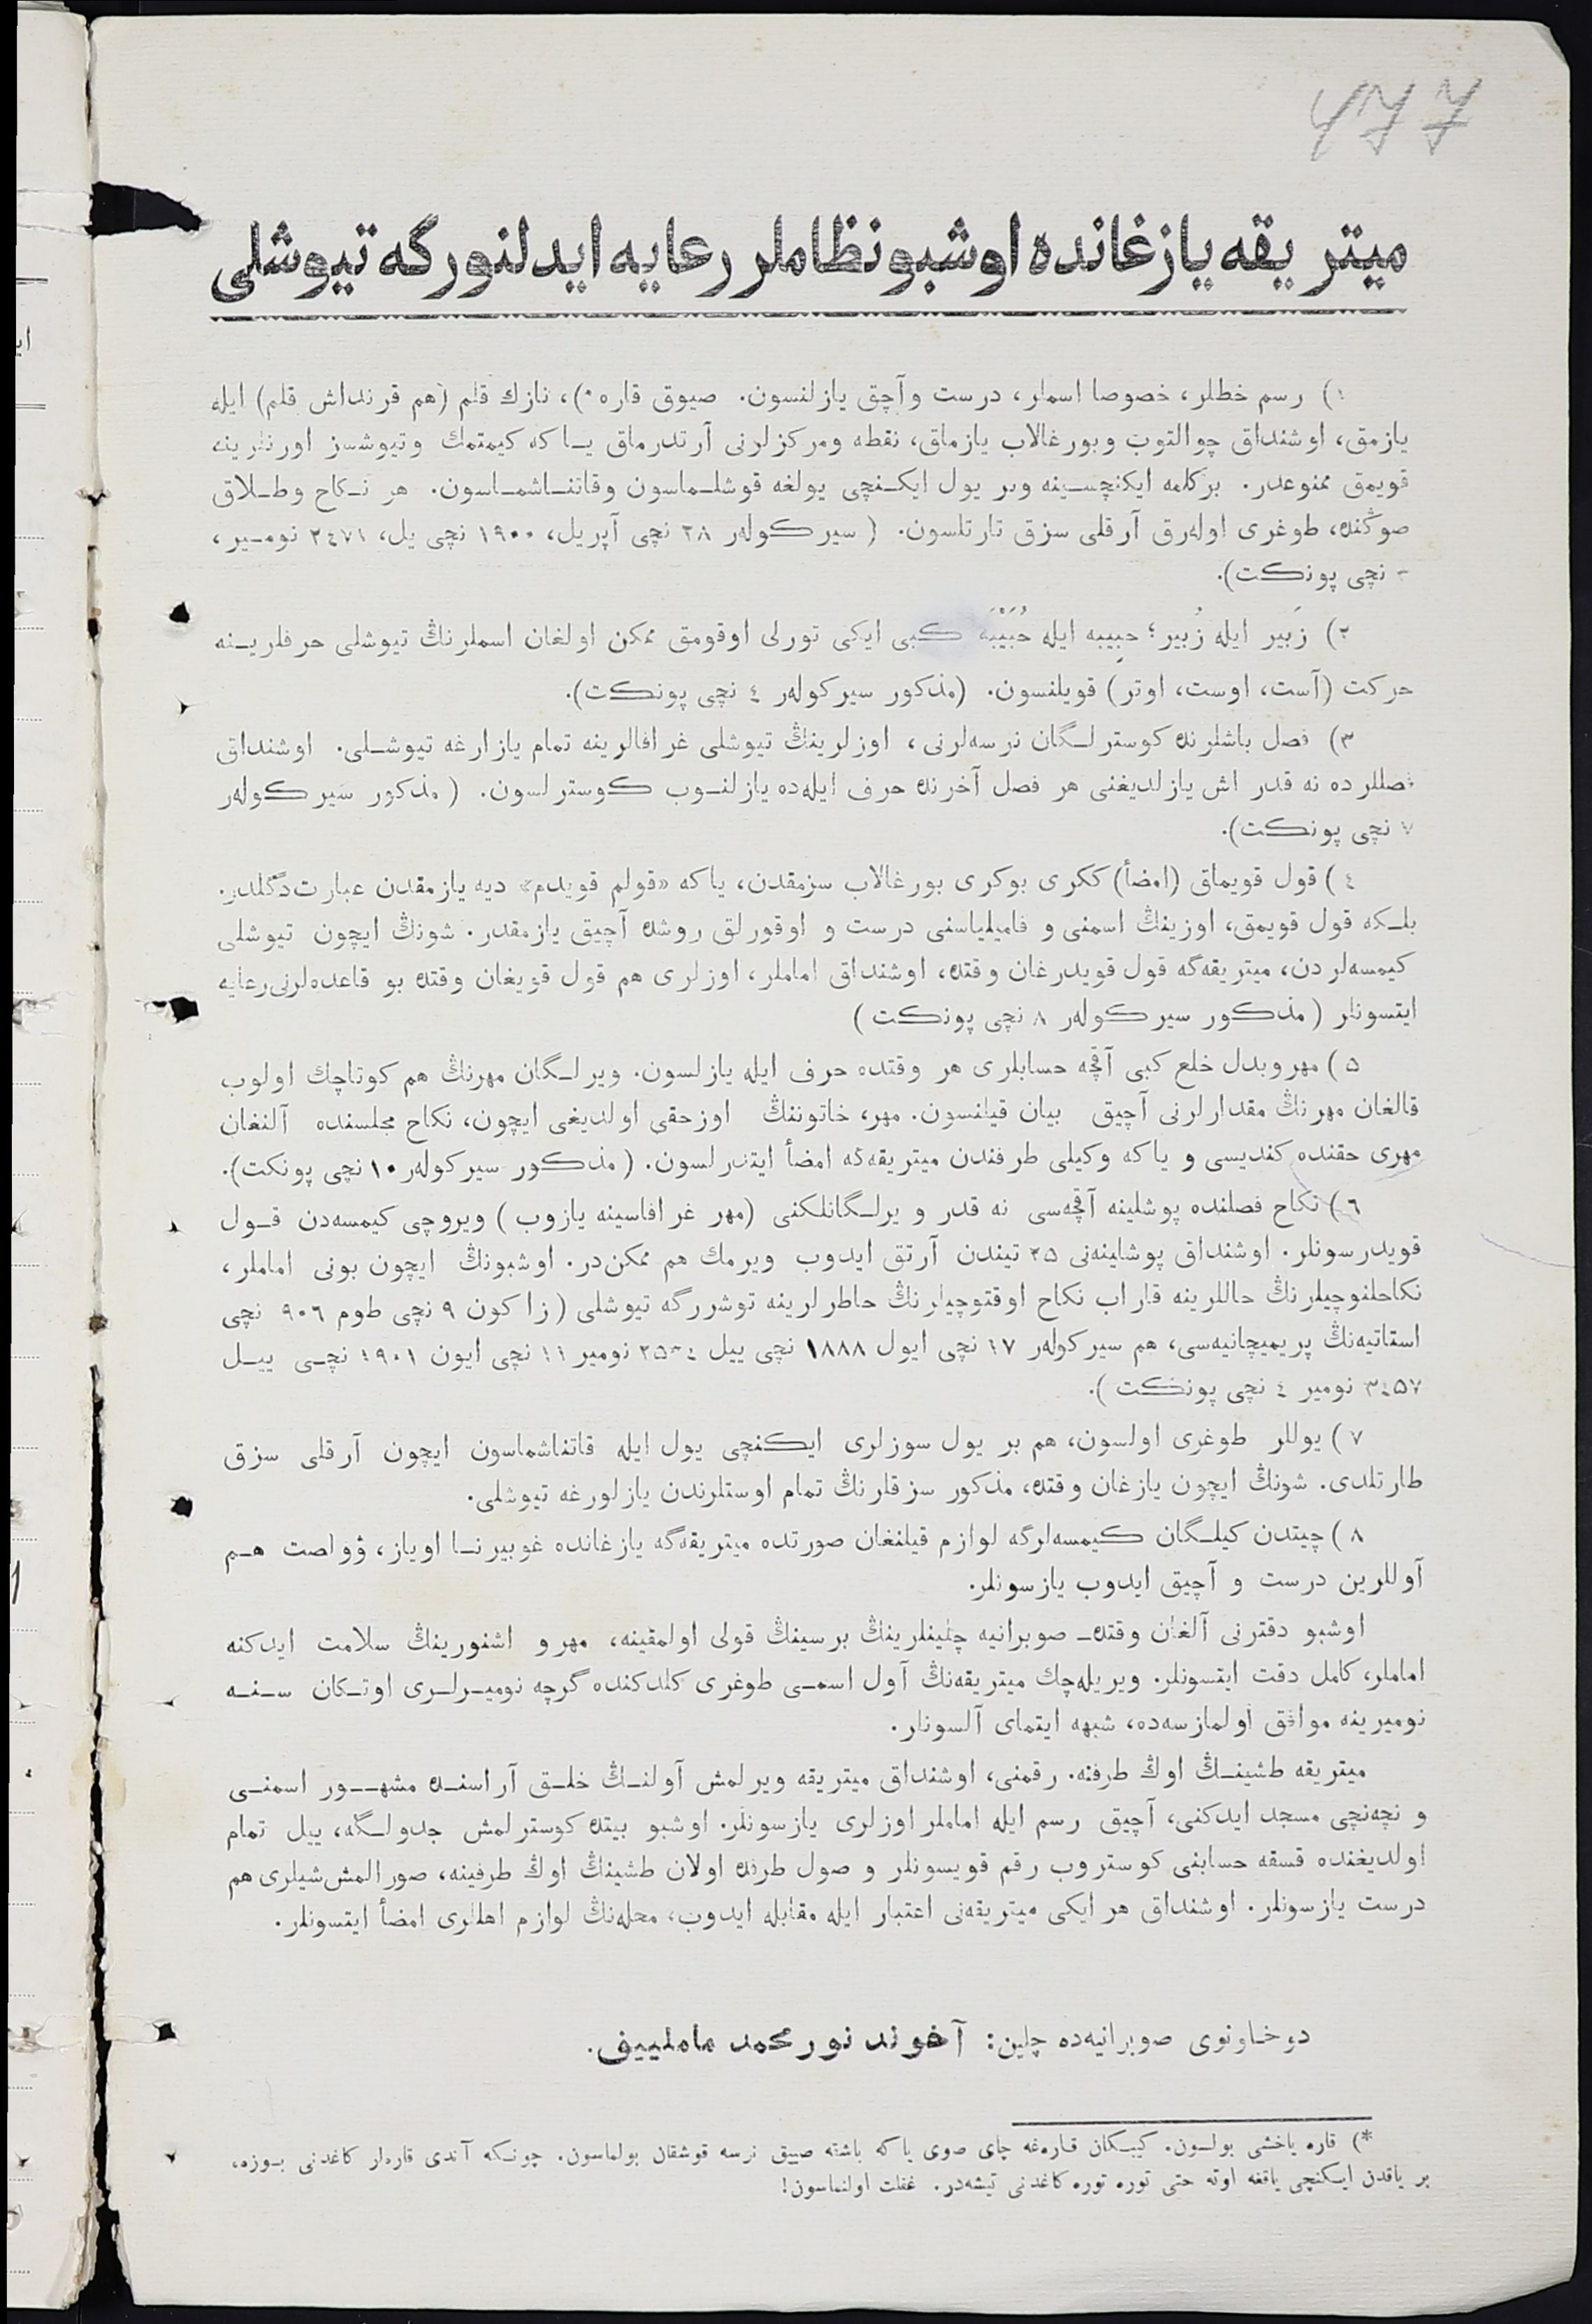 477
ميتريقه يازغانده اوشبو نظاملر رعايه ايدلنورگه تيوشلى
١) رسم خطلر، خصوصا اسملر، درست وآچق يازلنسون. صيوق قاره*)، نازك قلم (هم قرنداش قلم) ايله
يازمق، اوشنداق چوالتوب وبورغالاب يازماق، نقطه ومركزلرنى آرتدرماق يـاكه كيمتمك وتيوشسز اورنلرينه
قويمق ممنوعدر. بركلمه ايكنچسـينه وبر يول ايكـنچى يولغه قوشلـماسون وقاتنـاشمـاسون. هر نـكاح وطـلاق
صوڭنده، طوغرى اولەرق آرقلى سزق تارتلسون. (سيركولەر ٢٨ نچى آپريل، ١٩٠٠ نچى يل، ٢٤٧١ نومـير،
نچى پونكت).
٢) زَبير ايله زُبير؛ حبِيبه ايله حُبَيْبَه كبى ايكى تورلى اوقومق ممكن اولغان اسملرنڭ تيوشلى حرفلريـنه
حركت (آست، اوست، اوتر) قويلنسون. (مذكور سيركولەر ٤ نچى پونكت).
٣) فصل باشلرنده كوسترلـگان نرسەلرنى، اوزلرينڭ تيوشلى غرافالرينه تمام يازارغه تيوشـلى. اوشنداق
فصللرده نه قدر اش يازلديغنى هر فصل آخرنده حرف ايلەده يازلنـوب كوسترلسون. (مذكور سيركولەر
٧ نچى پونكت).
٤) قول قويماق (امضأ) ككرى بوكرى بورغالاب سزمقدن، ياكه «قولم قويدم» ديه يازمقدن عبارت دگلدر.
بلـكه قول قويمق، اوزينڭ اسمنى و فاميلياسنى درست و اوقورلق روشده آچيق يازمقدر. شونڭ ايچون تيوشلى
كيمسەلردن، ميتريقەگه قول قويدرغان وقتده، اوشنداق اماملر، اوزلرى هم قول قويغان وقتده بو قاعدەلرنى رعايه
ايتسونلر (مذكور سيركولەر ٨ نچى پونكت)
٥) مهر وبدل خلع كبى آقچه حسابلرى هر وقتده حرف ايله يازلسون. ويرلـگان مهرنڭ هم كوتاچك اولوب
قالغان مهرنڭ مقدارلرنى آچيق بيان قيلنسون. مهر، خاتوننڭ اوزحقى اولديغى ايچون، نكاح مجلسنده آلنغان
مهرى حقنده كنديسى و ياكه وكيلى طرفندن ميتريقەگه امضأ ايتدرلسون. (مذكور سيركولەر ١٠ نچى پونكت).
٦) نكاح فصلنده پوشلينه آقچەسى نه قدر ويرلـگانلكنى (مهر غرافاسينه يازوب) ويروچى كيمسەدن قـول
قويدرسونلر. اوشنداق پوشلينەنى ٢٥ تيندن آرتق ايدوب ويرمك هم ممكن در. اوشبونڭ ايچون بونى اماملر،
نكاحلنوچيلرنڭ حاللرينه قاراب نكاح اوقتوچيلرنڭ خاطرلرينه توشررگه تيوشلى (زاكون ٩ نچى طوم ٩٠٦ نچى
استاتيەنڭ پريميچانيەسى، هم سيركولەر ١٧ نچى ايول ١٨٨٨ نچى ييل نومير ١١ نچى ايون ١٩٠١ نچـى ييـل
٣٤٥٧ نومير ٤ نچى پونكت).
٧) يوللر طوغرى اولسون، هم بر يول سوزلرى ايكنچى يول ايله قاتناشماسون ايچون آرقلى سزق
طارتلدى. شونڭ ايچون يازغان وقتده، مذكور سزقلرنڭ تمام اوستلرندن يازلورغه تيوشلى.
٨) چيتدن كيلـگان كيمسەلرگه لوازم قيلنغان صورتده ميتريقەگه يازغانده غوبيرنـا اوياز، ۋولصت هـم
آوللرين درست و آچيق ايدوب يازسونلر.
اوشبو دفترنى آلغان وقتده صوبرانيه چلينلرينڭ برسينڭ قولى اولمقينه، مهر و اشنورينڭ سلامت ايدكنه
اماملر، كامل دقت ايتسونلر. ويريلەچك ميتريقەنڭ آول اسمـى طوغرى كلدكنده گرچه نوميـرلـرى اوتـكان سـنـه
نوميرينه موافق اولمازسەده، شبهه ايتماى آلسونلر.
ميتريقه طشينـڭ اوڭ طرفنه. رقمنى، اوشنداق ميتريقه ويرلمش آولنـڭ خلـق آراسنـده مشهــور اسمنـى
و نچەنچى مسجد ايدكنى، آچيق رسم ايله اماملر اوزلرى يازسونلر. اوشبو بيتده كوسترلمش جدولـگه، ييل تمام
اولديغنده قسقه حسابنى كوستروب رقم قويسونلر و صول طرفده اولان طشينڭ اوڭ طرفينه، صورالمش شيلرى هم
درست يازسونلر. اوشنداق هر ايكى ميتريقەنى اعتبار ايله مقابله ايدوب، محلەنڭ لوازم اهللرى امضأ ايتسونلر.
دوخاونوى صوبرانيەده چلين: آخوند نور محمد ماملييف.
*) قاره ياخشى بولسون. كيبكان قارەغه چاى صوى ياكه باشته صييق نرسه قوشقان بولماسون. چونـكه آندى قارەلر كاغدنى بـوزه،
بر ياقدن ايـكنچى ياقغه اوته حتى توره توره كاغدنى تيشەدر. غفلت اولنماسون!